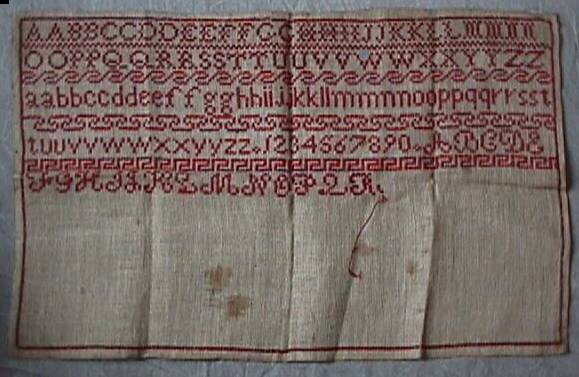 AABBCCDDEEFFGGHHIIJJKKLLMMNN
OOPPQQRRSSTTUUVVWWXXYYZZ
aabbccddeeffgghhiijjkkllmmnnooppqqrrsst
tuuvvwwxxyyzz.1234567890.ABCDE
FGHIJKLMNOPQR.